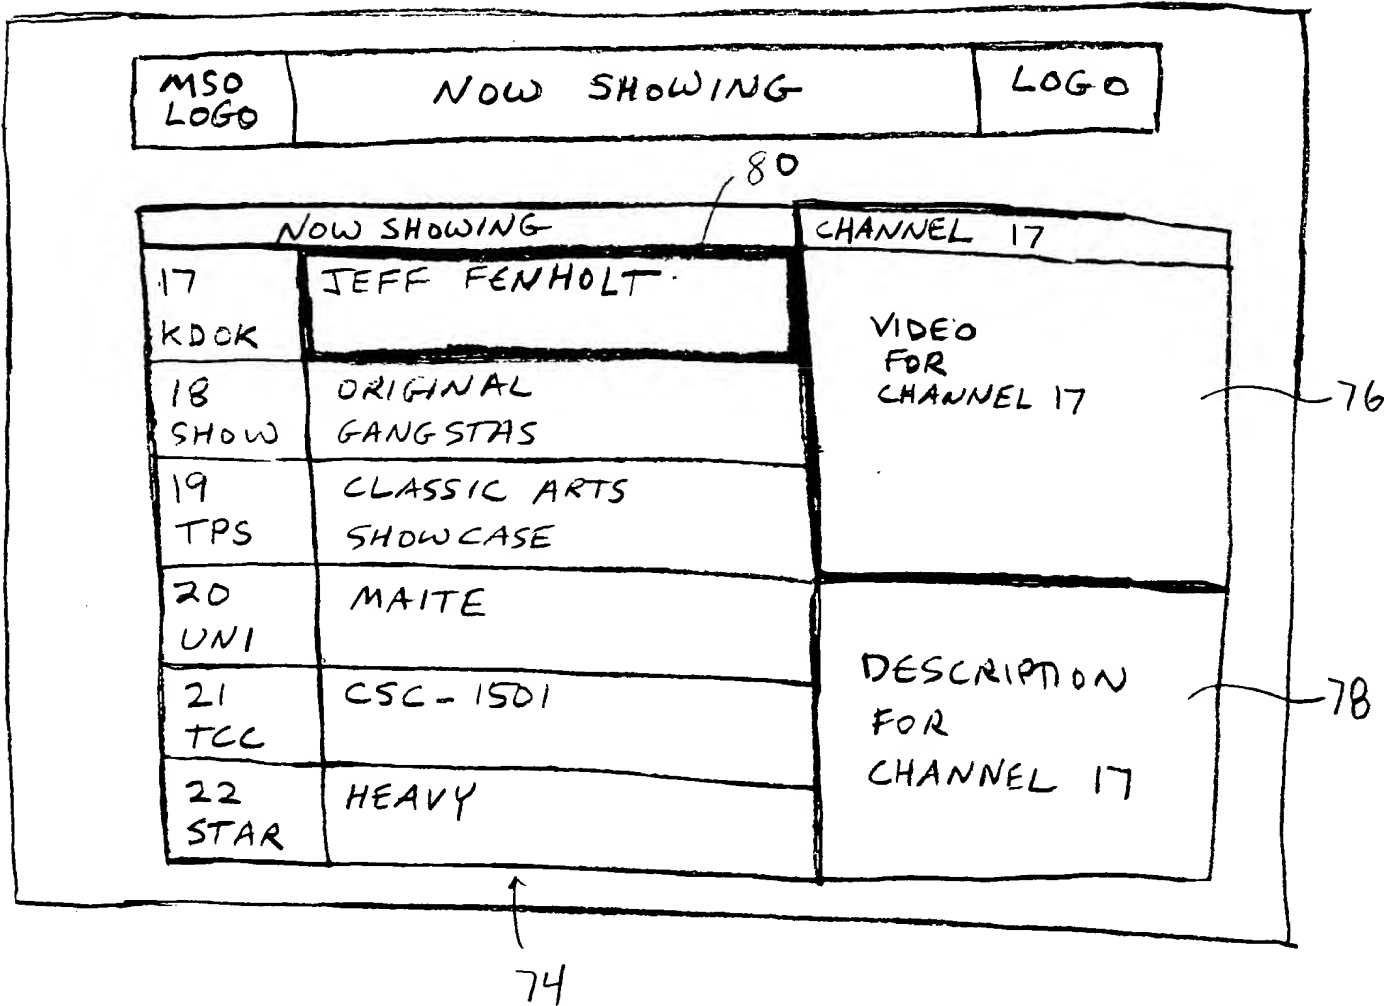 MSO
LOGO
NOW SHOWING
LOGO
80
NOW SHOWING
CHANNEL 17
17
KDOK
JEFF FENHOLT
18
SHOW
ORIGINAL
GANGSTAS
19
TPS
CLASSIC ARTS
SHOWCASE
20
UNI
MAITE
21
TCC
CSC-1501
22
STAR
HEAVY
VIDEO
FOR
CHANNEL 17
76
DESCRIPTION
FOR
CHANNEL 17
78
74